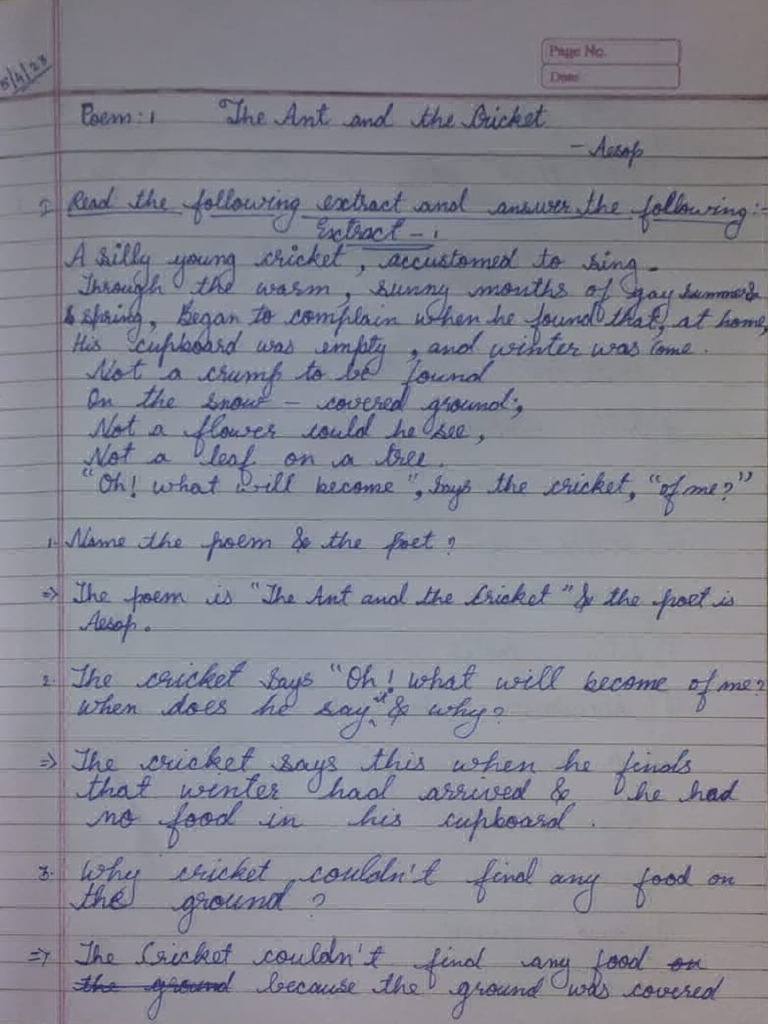 5/4/23
Page No.
Date
Poem:1 The Ant and the Cricket
- Aesop
I Read the following extract and answer the following:-
Extract - 1
A silly young cricket, accustomed to sing.
Through the warm, sunny months of gay summer &
spring, Began to complain when he found that, at home,
His cupboard was empty, and winter was come.
Not a crump to be found
On the snow - covered ground;
Not a flower could he see,
Not a leaf on a tree.
"Oh! what will become", says the cricket, "of me?"
1. Name the poem & the poet?
=> The poem is "The Ant and the Cricket" & the poet is
Aesop.
2. The cricket says "Oh! what will become of me?
when does he say it & why?
=> The cricket says this when he finds
that winter had arrived & he had
no food in his cupboard.
3. Why cricket couldn't find any food on
the ground?
=> The Cricket couldn't find any food on
the ground because the ground was covered